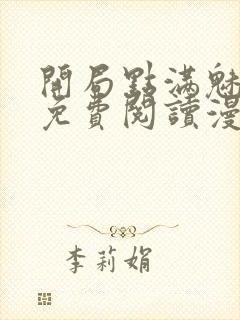 開局點滿魅
免費閱讀漫
李莉娟